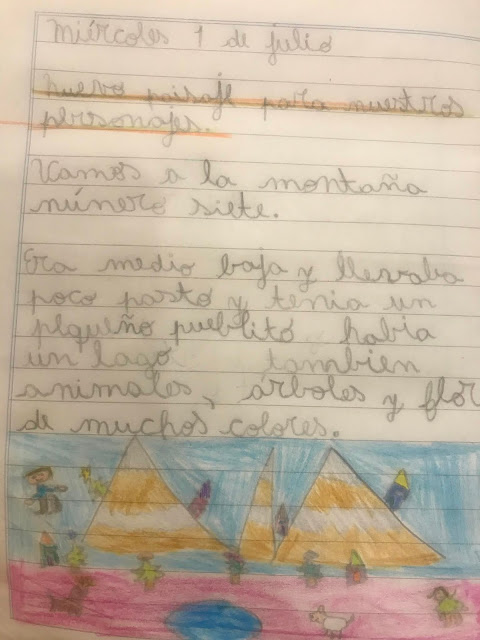 Miércoles 1 de julio
nuevo paisaje para nuestros
personajes.
Vamos a la montaña
número siete.
Era medio baja y llevaba
poco pasto y tenia un
pequeño pueblito habia
un lago tambien
animales, árboles y flor
de muchos colores.